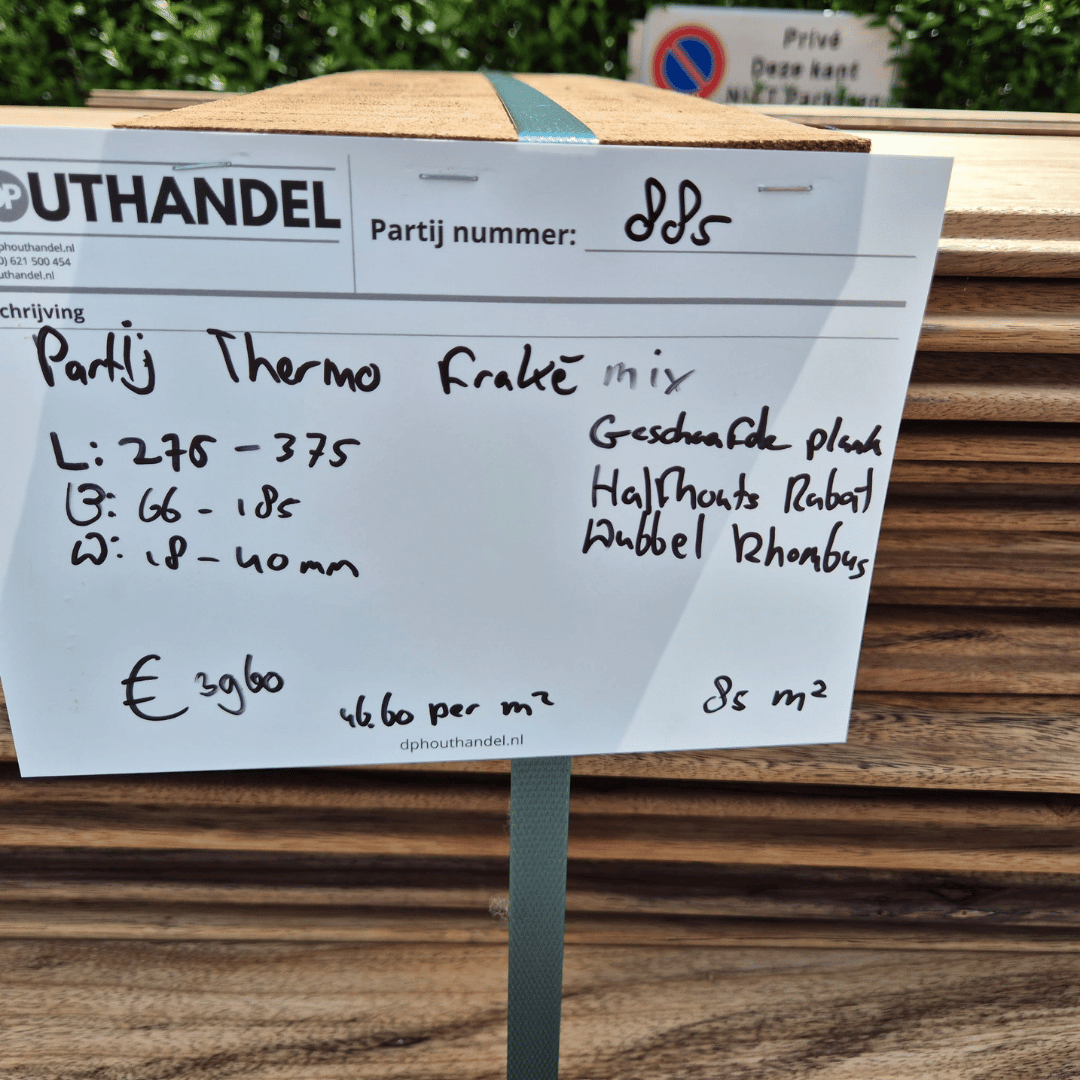 Privé
Deze kant
NIET Parkeren
DP
OUTHANDEL
Partij nummer: 885
phouthandel.nl
0) 621 500 454
uthandel.nl
chrijving
Partij Thermo Fraké mix
L: 275 - 375
B: 66 - 185
D: 18 - 40 mm
Geschaafde plank
Halfhouts Rabat
Dubbel Rhombus
€ 3960
46.60 per m²
85 m²
dphouthandel.nl